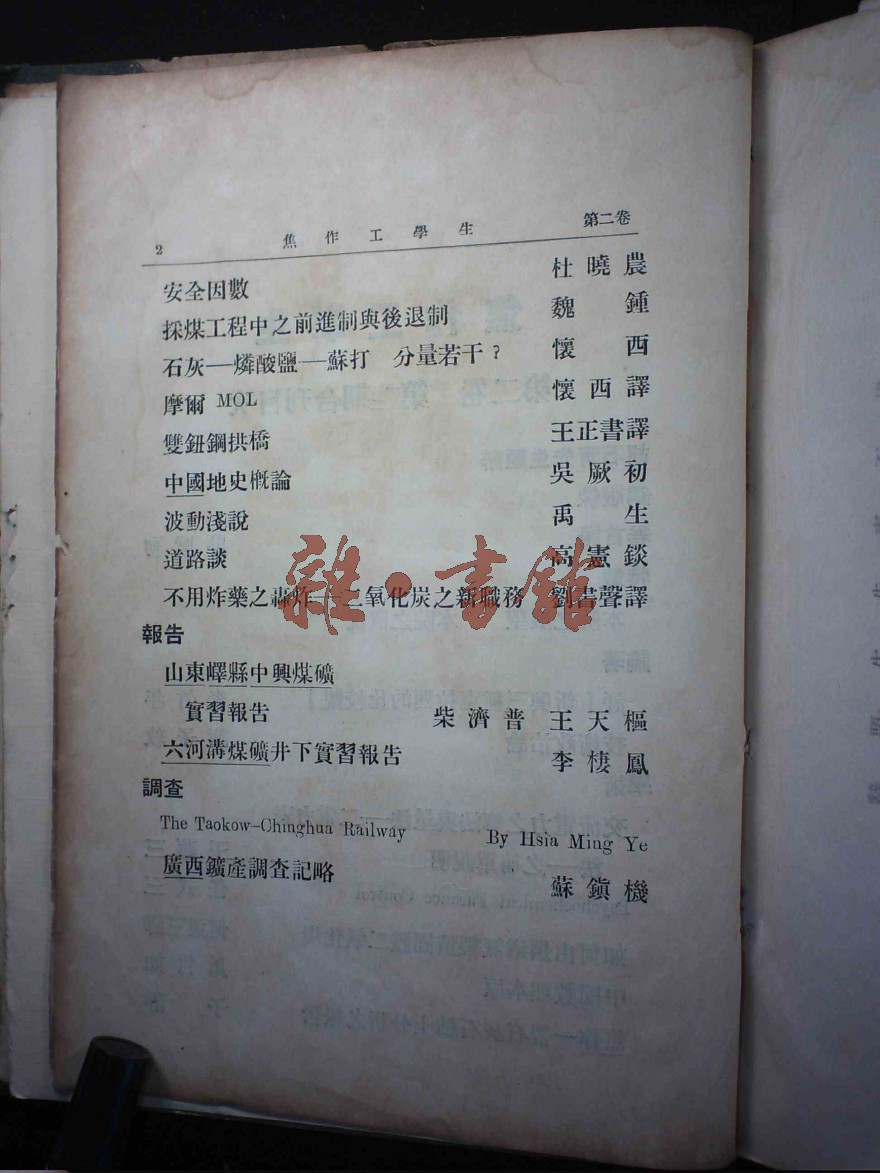 2 焦作工學生 第二卷
安全因數 杜曉農
採煤工程中之前進制與後退制 魏鍾
石灰—燐酸鹽—蘇打 分量若干? 懷西
摩爾 MOL 懷西譯
雙鈕鋼拱橋 王正書譯
中國地史概論 吳厥初
波動淺說 禹生
道路談 高憲錟
不用炸藥之轟炸—二氧化炭之新職務 劉書聲譯
報告
山東嶧縣中興煤礦
實習報告 柴濟普 王天樞
六河溝煤礦井下實習報告 李棲鳳
調查
The Taokow-Chinghua Railway By Hsia Ming Ye
廣西鑛產調查記略 蘇鎭機
雜·書館